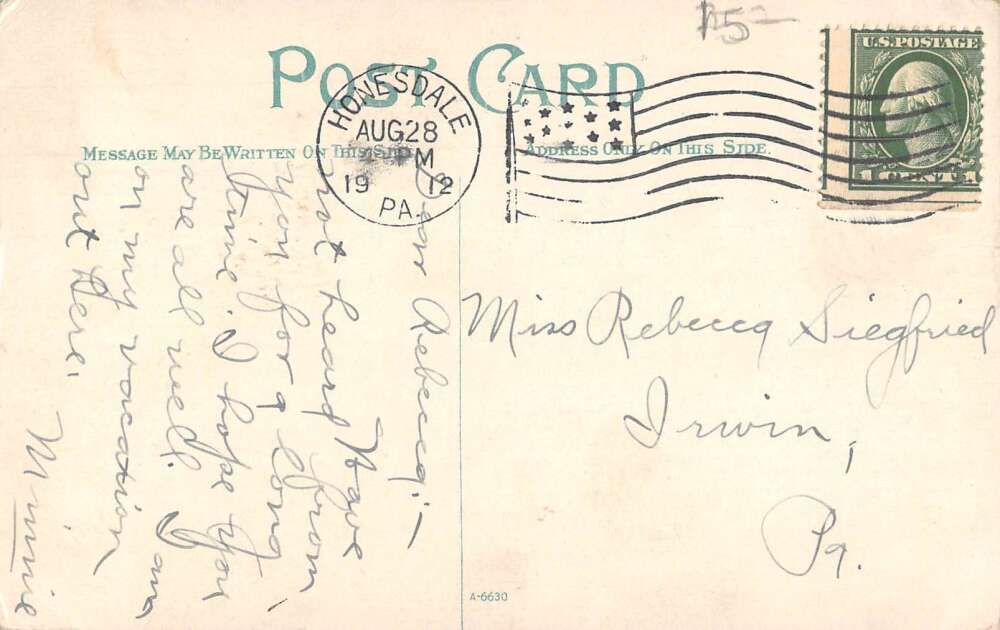 n5-
POST CARD
MESSAGE MAY BE WRITTEN ON THIS SIDE
ADDRESS ONLY ON THIS SIDE.
HONESDALE
AUG 28
M
19 12
PA.
U.S. POSTAGE
1 CENT 1
Dear Rebecca:—
Have
not heard from
you for a long
time. I hope you
are all well. I am
on my vacation
out here.
Minnie
Miss Rebecca Siegfried
Irwin,
Pa.
A-6630